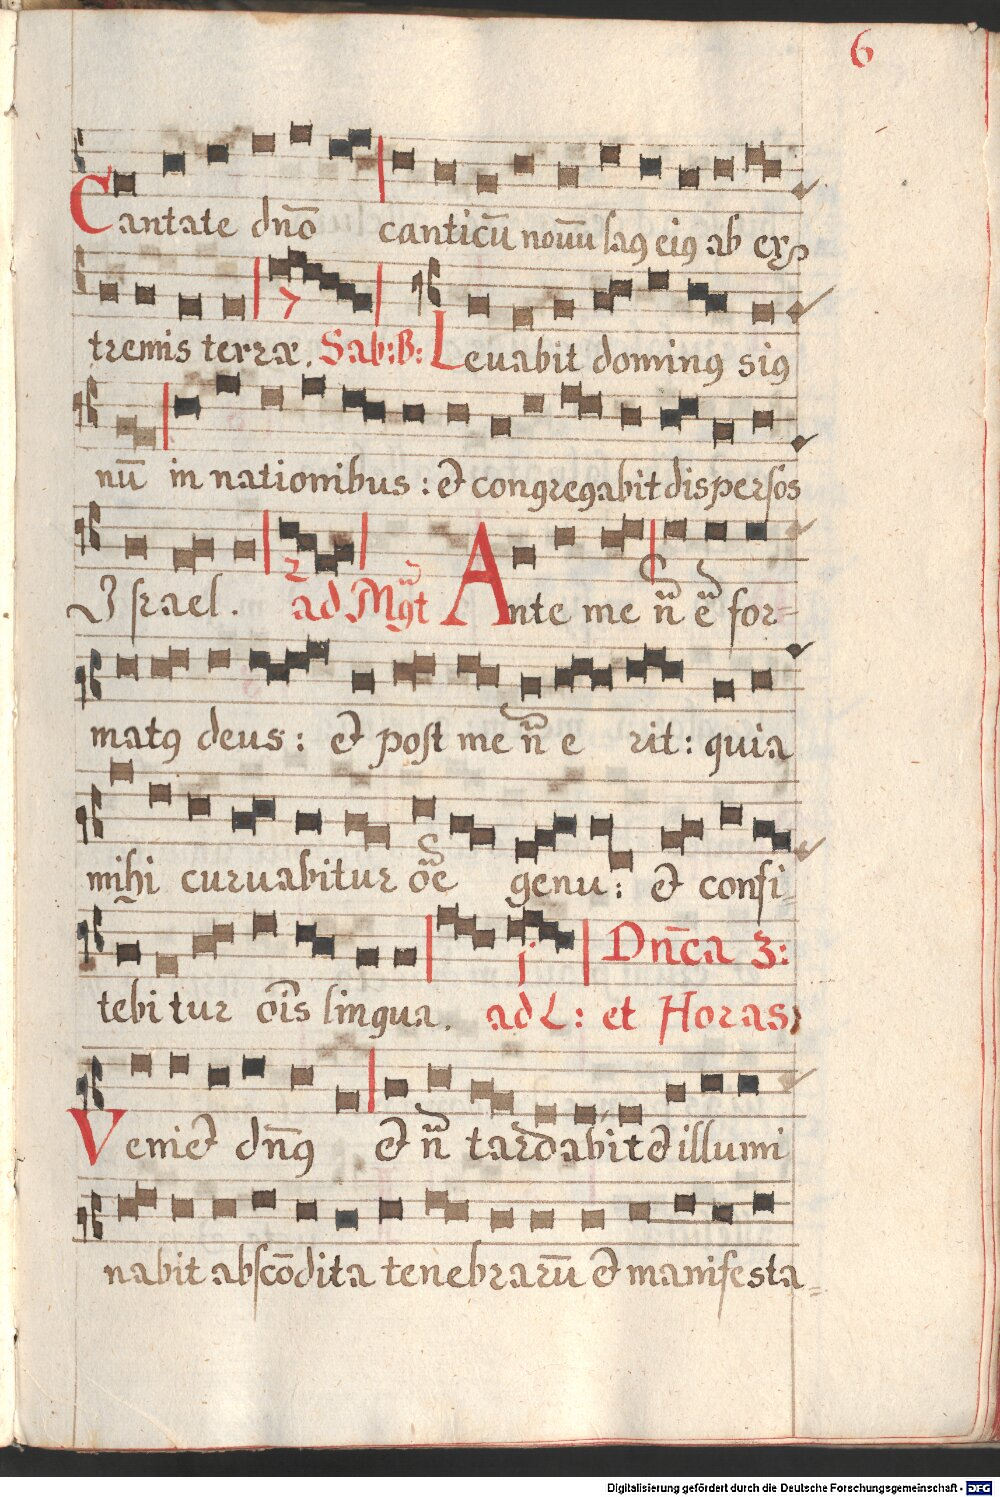 6
Cantate dn̄o canticū nouū laꝰ eiꝰ ab ex-
tremis terræ. Sab: B: Leuabit dominꝰ sig
nū in nationibus: et congregabit dispersos
Israel. ad Mgt Ante me n̄ ē for=
matꝰ deus: et post me n̄ e rit: quia
mihi curuabitur oē genu: et confi=
tebitur oīs lingua. Dn̄ca 3:
ad L: et Horas
Veniet dn̄ꝰ et n̄ tardabit et illumi
nabit abscōdita tenebrarū et manifesta=
Digitalisierung gefördert durch die Deutsche Forschungsgemeinschaft - DFG